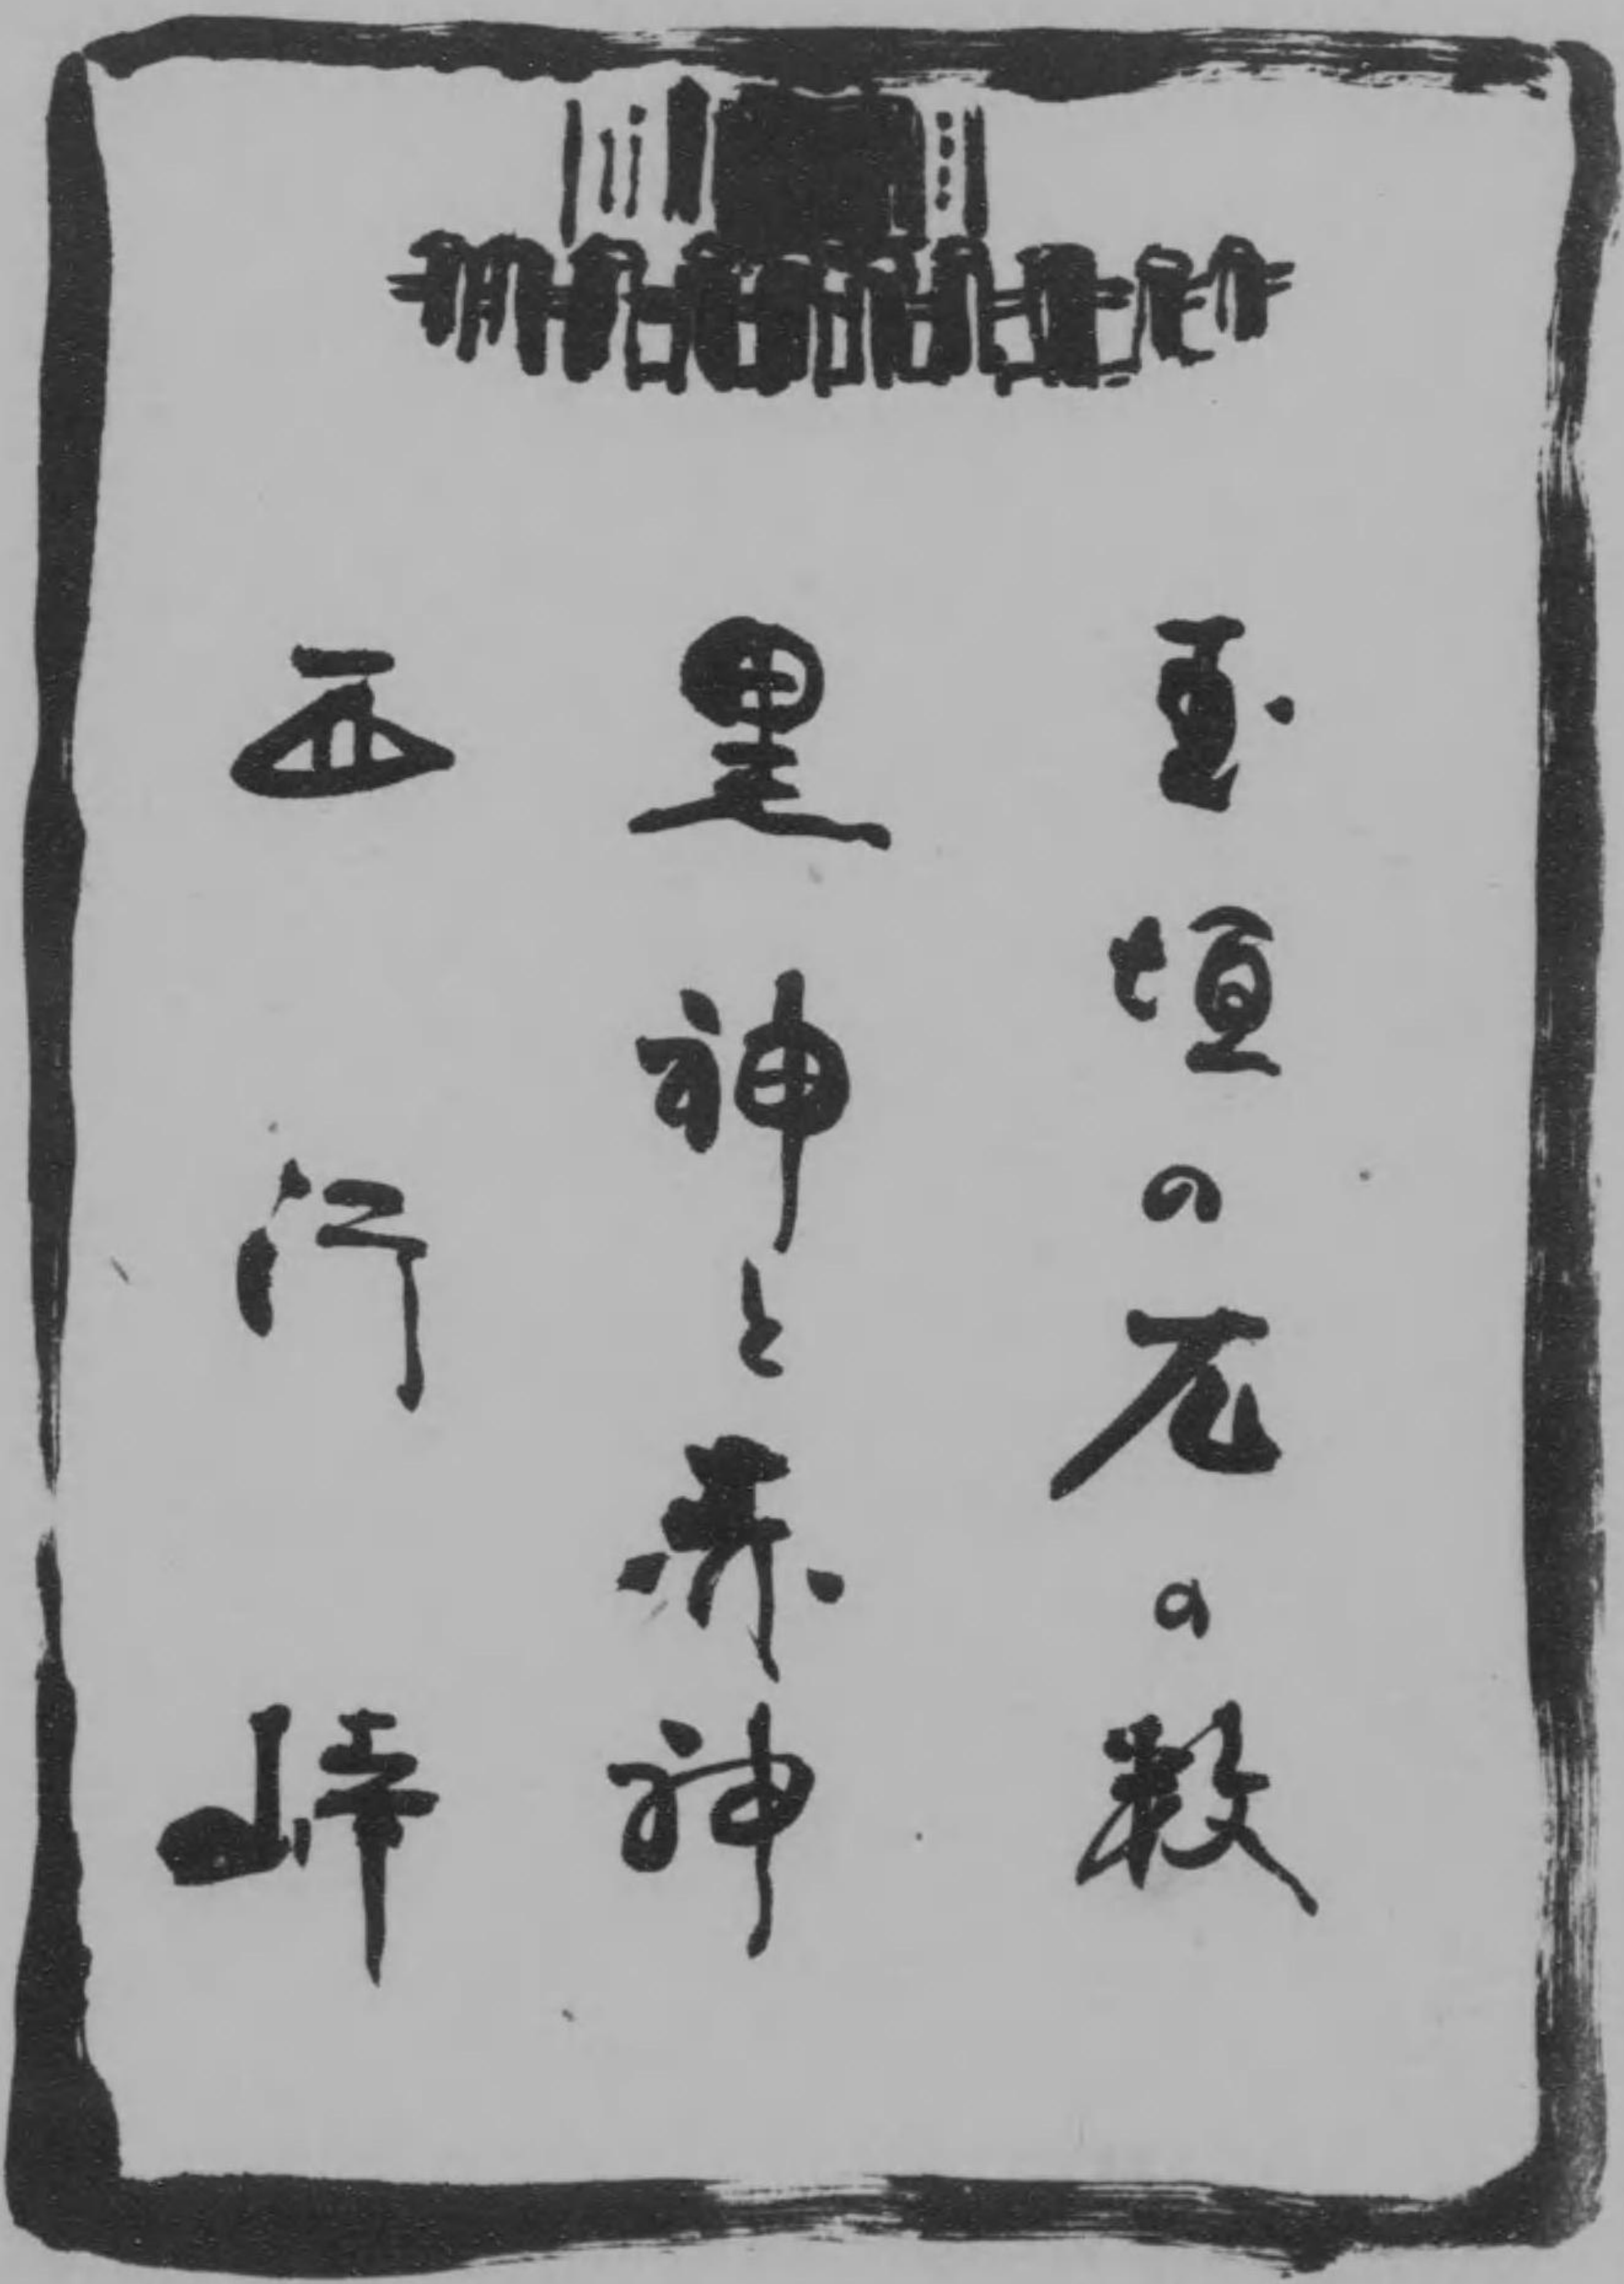 玉垣の厄の数
黒神と赤神
西行峠